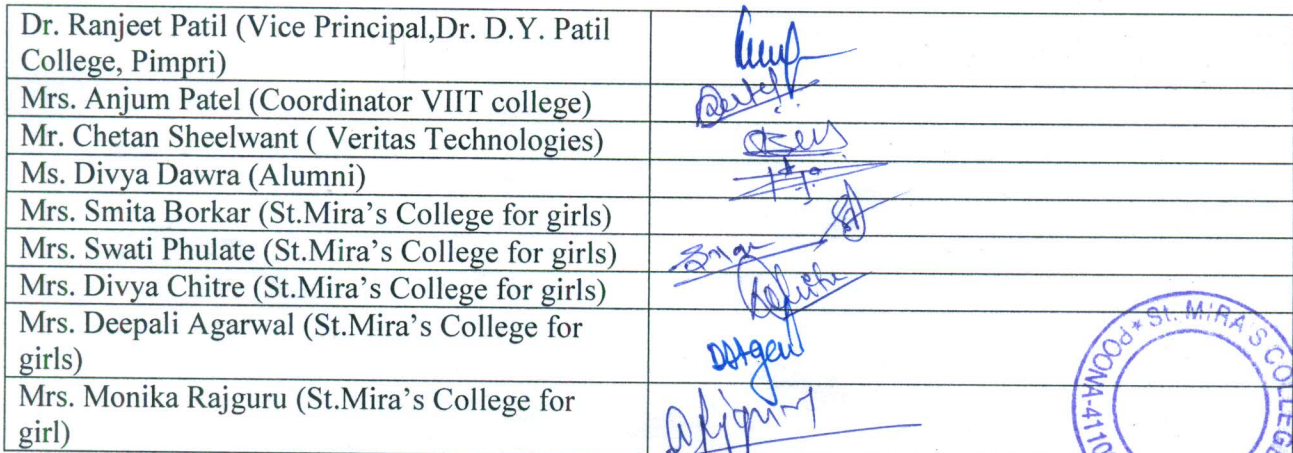 Dr. Ranjeet Patil (Vice Principal,Dr. D.Y. Patil
College, Pimpri)
Mrs. Anjum Patel (Coordinator VIIT college)
Mr. Chetan Sheelwant ( Veritas Technologies)
Ms. Divya Dawra (Alumni)
Mrs. Smita Borkar (St.Mira's College for girls)
Mrs. Swati Phulate (St.Mira's College for girls)
Mrs. Divya Chitre (St.Mira's College for girls)
Mrs. Deepali Agarwal (St.Mira's College for
girls)
Mrs. Monika Rajguru (St.Mira's College for
girl)
POONA-4110
* St. MIRA'S COLLEGE